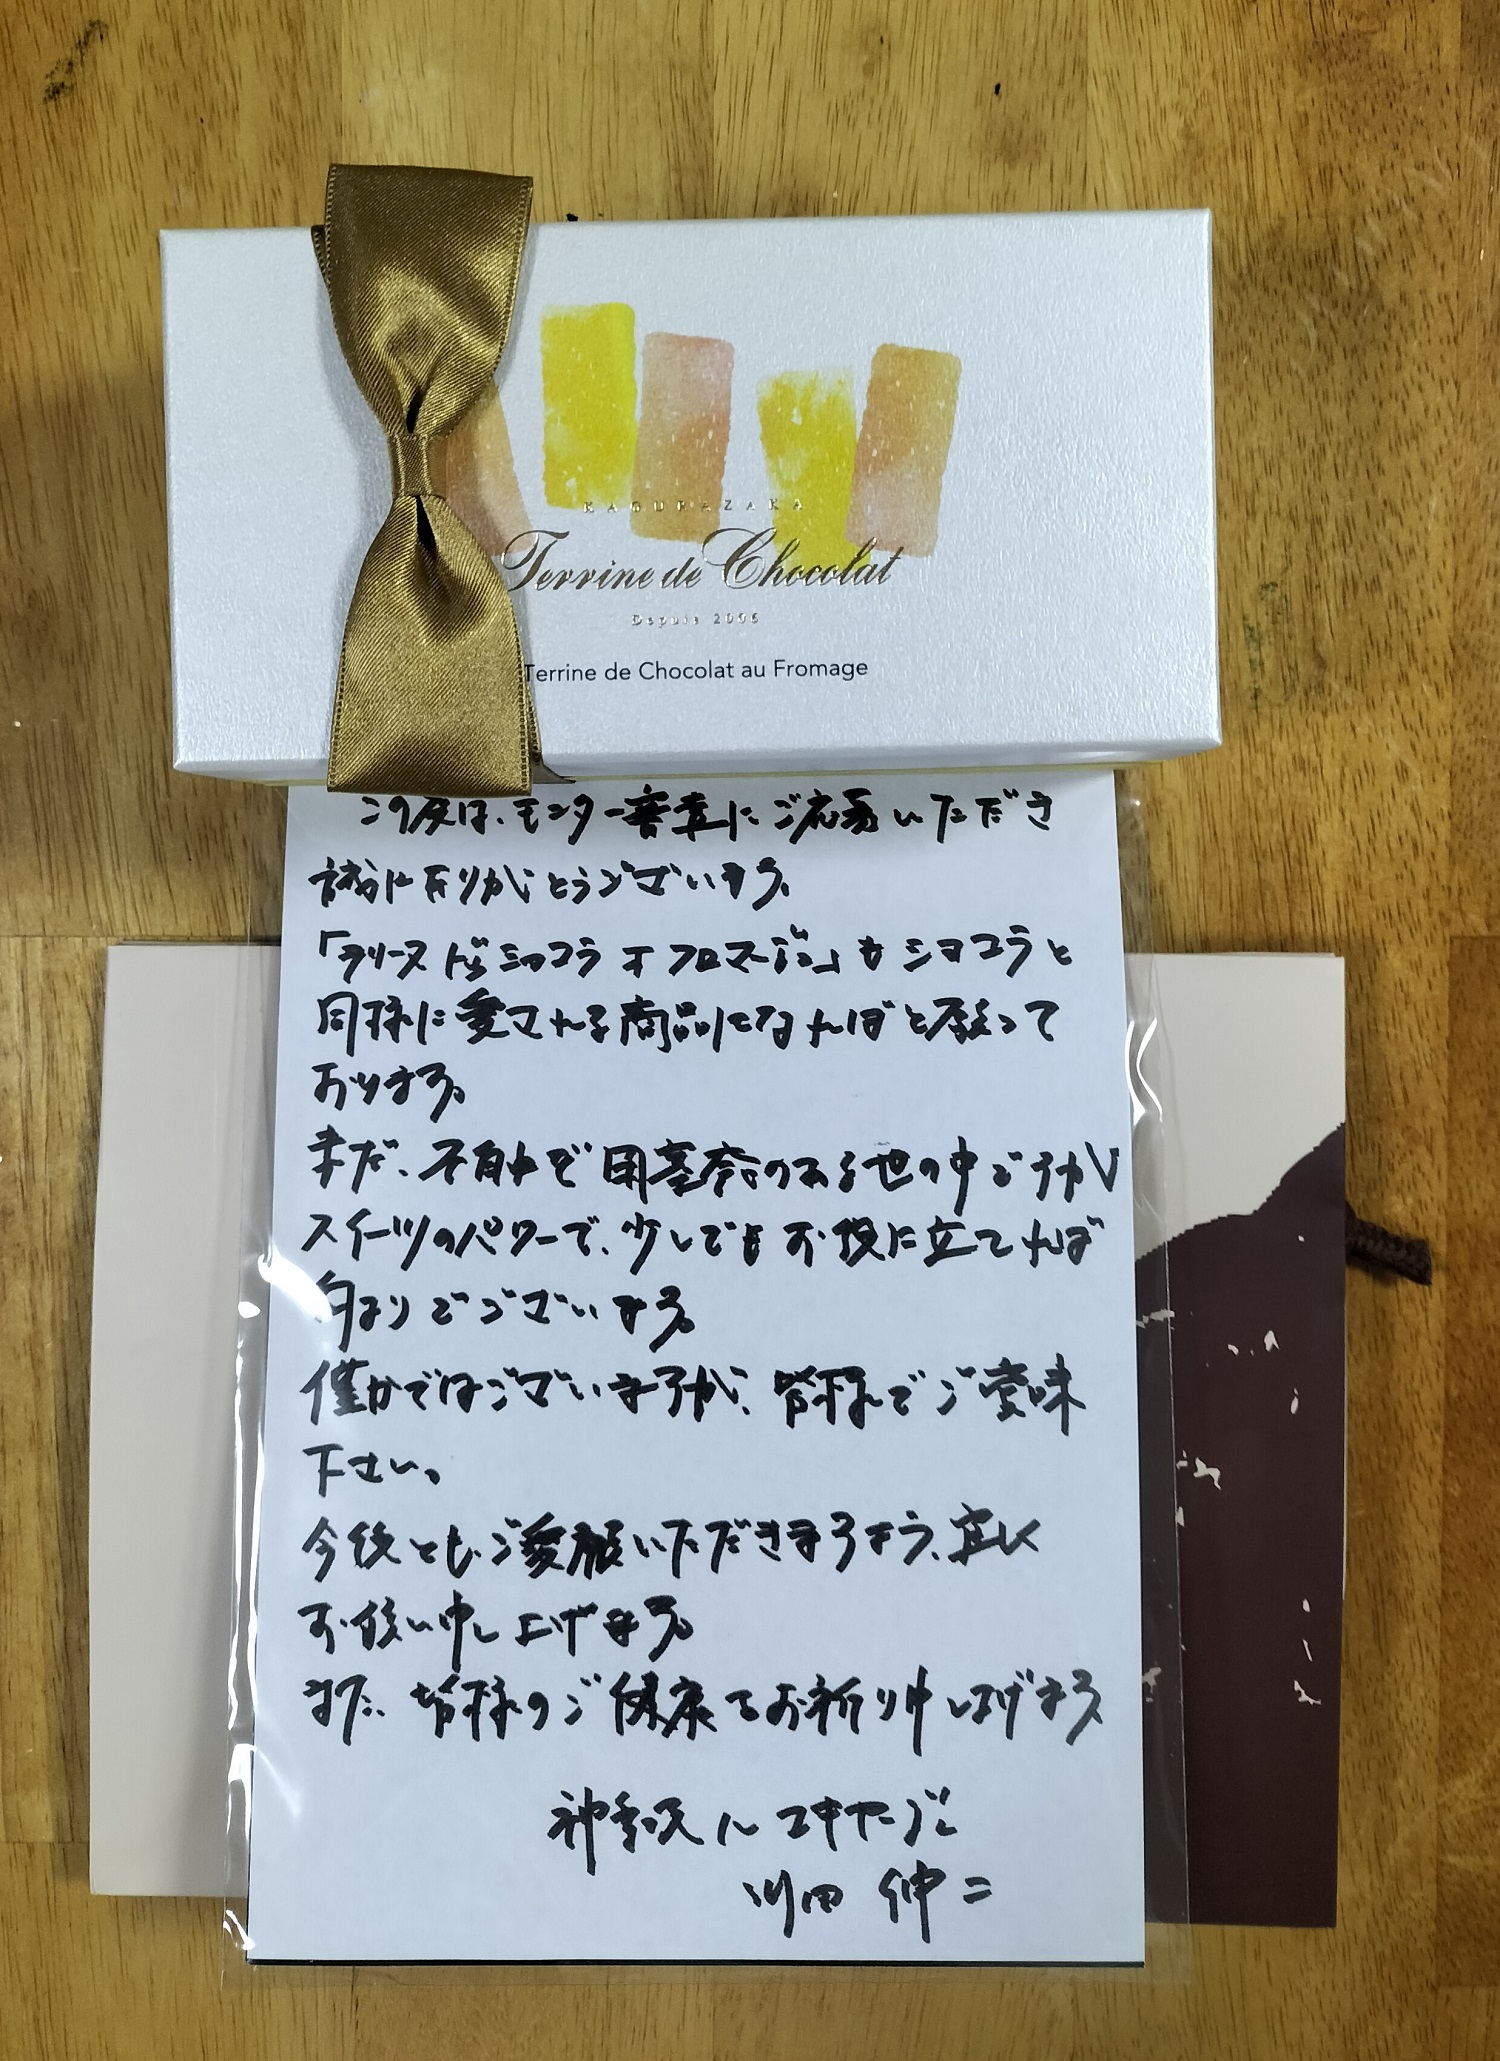 KAGURAZAKA
Terrine de Chocolat
Depuis 2006
Terrine de Chocolat au Fromage
この度は、モンター審査にご応募いただき
誠に有りがとうございます。
「テリーヌ ドゥ ショコラ オ フロマージュ」も ショコラと
同様に愛される商品になればと願って
おります。
まだ、不自由で困難のある世の中ですが
スイーツのパワーで、少しでもお役に立てれば
何よりでございます。
僅かではございますが、皆様でご賞味
下さい。
今後とも、ご愛顧いただきますよう、宜しく
お願い申し上げます。
また、皆様のご健康をお祈り申し上げます
神楽坂 ル コキヤージュ
川田 伸二